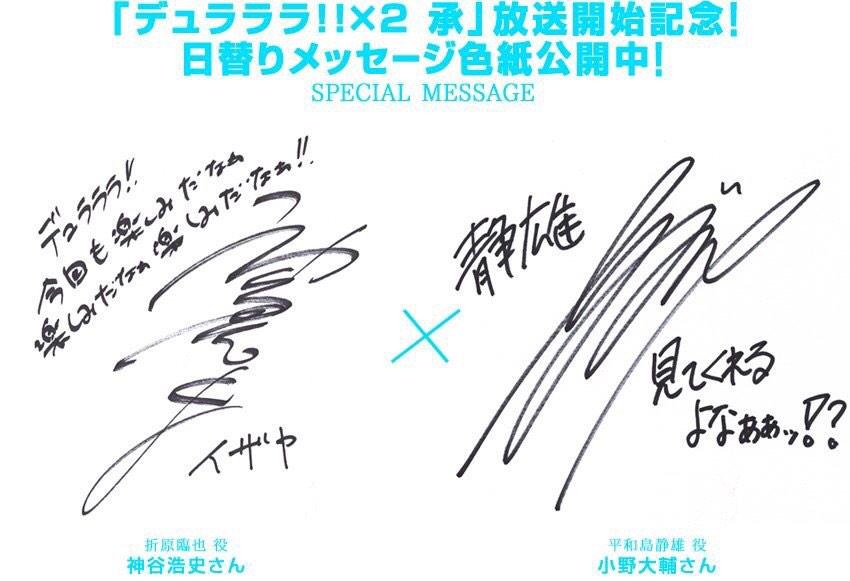 「デュラララ!!×2 承」放送開始記念!
日替りメッセージ色紙公開中!
SPECIAL MESSAGE
デュラララ!!
今回も楽しみだなぁ
楽しみだなぁ楽しみだなぁ!!
イザヤ
×
静雄
見てくれる
よなぁぁッ!?
折原臨也 役
神谷浩史さん
平和島静雄 役
小野大輔さん